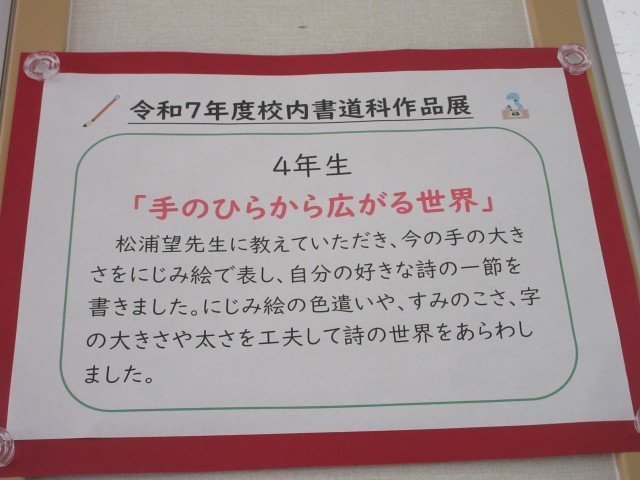 令和7年度校内書道科作品展
4年生
「手のひらから広がる世界」
松浦望先生に教えていただき、今の手の大き
さをにじみ絵で表し、自分の好きな詩の一節を
書きました。にじみ絵の色遣いや、すみのこさ、字
の大きさや太さを工夫して詩の世界をあらわし
ました。